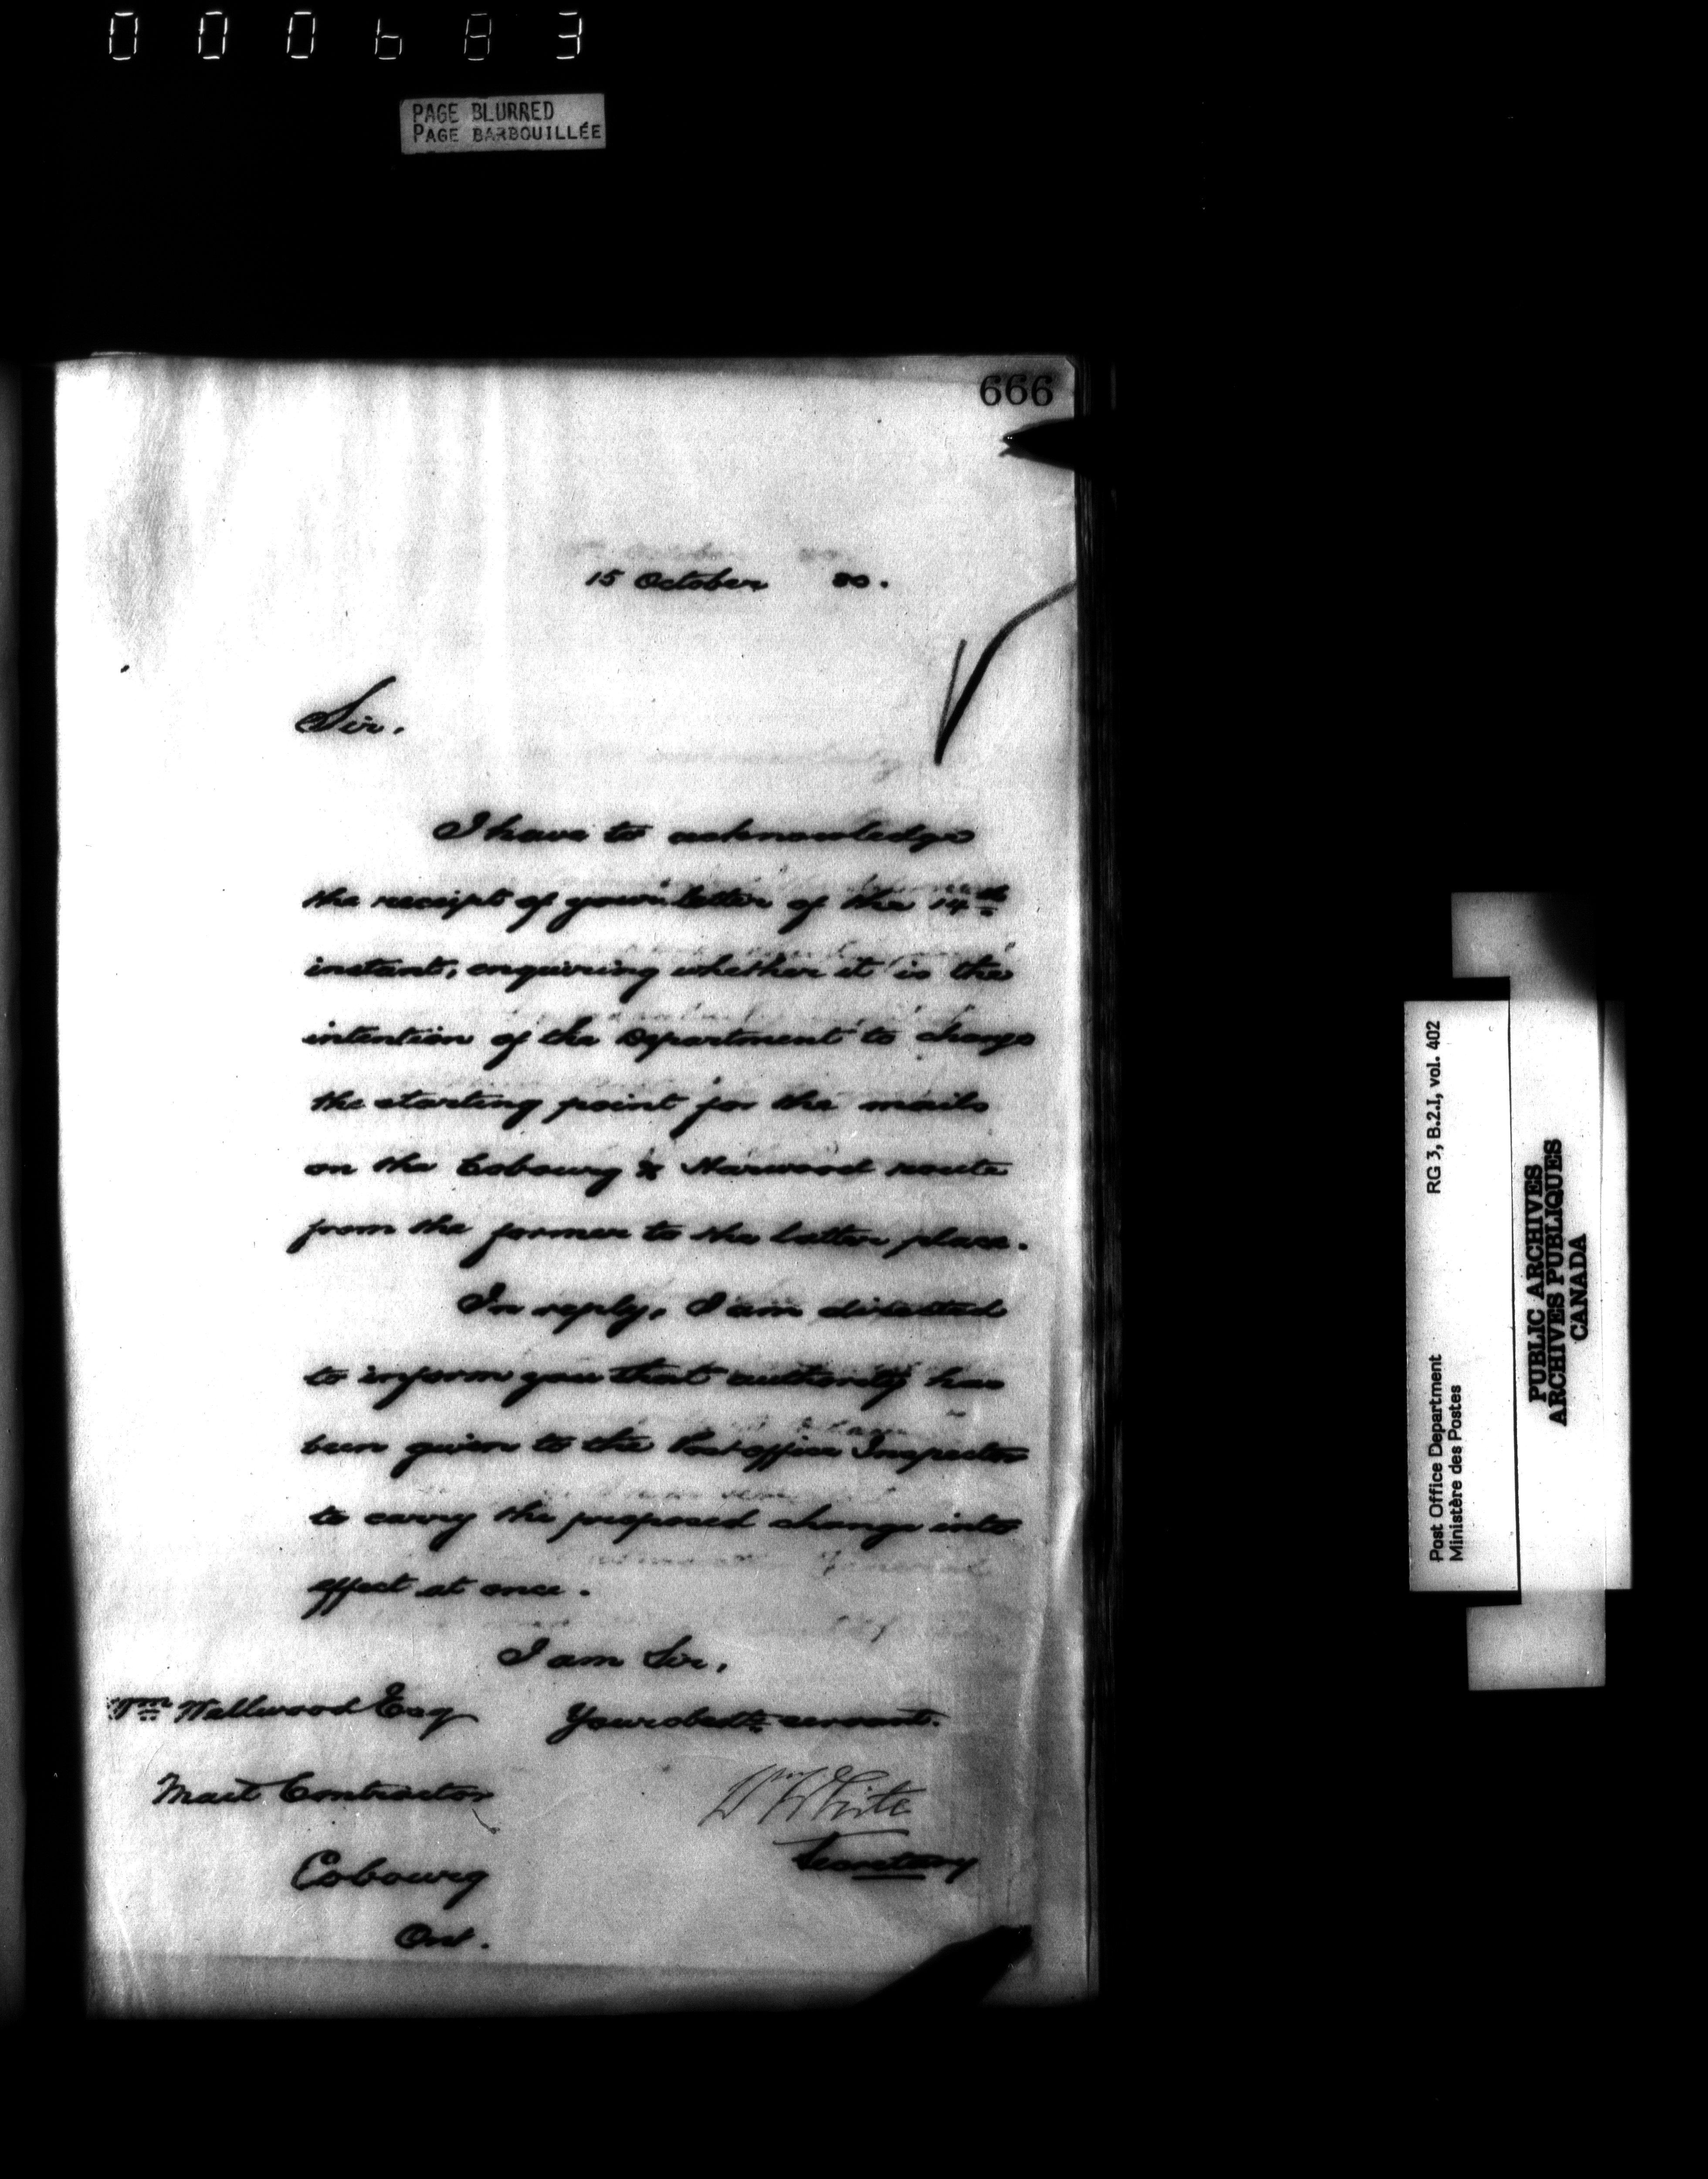 000683
PAGE BLURRED
PAGE BARBOUILLÉE
666
15 October 80.
Sir.
I have to acknowledge
the receipt of your letter of the 14th
instant, enquiring whether it is the
intention of the Department to change
the starting point for the mails
on the Cobourg & Harwood route
from the former to the latter place.
In reply, I am directed
to inform you that authority has
been given to the Post office Inspector
to carry the proposed change into
effect at once.
I am Sir,
Your obedt servant.
Wm White
Secretary
Wm Wellwood Esq
Mail Contractor
Cobourg
Ont.
Post Office Department RG 3, B.2.I, vol. 402
Ministère des Postes
PUBLIC ARCHIVES
ARCHIVES PUBLIQUES
CANADA